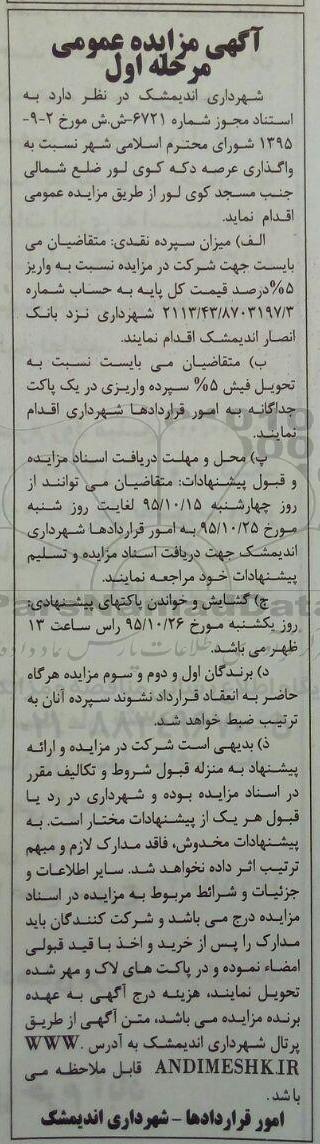 آگهی مزایده عمومی
مرحله اول
شهرداری اندیمشک در نظر دارد به
استناد مجوز شماره ۶۷۲۱-ش.ش مورخ ۲-۹-
۱۳۹۵ شورای محترم اسلامی شهر نسبت به
واگذاری عرصه دکه کوی لور ضلع شمالی
جنب مسجد کوی لور از طریق مزایده عمومی
اقدام نماید.
الف) میزان سپرده نقدی: متقاضیان می
بایست جهت شرکت در مزایده نسبت به واریز
۵%درصد قیمت کل پایه به حساب شماره
۲۱۱۳/۴۳/۸۷۰۳۱۹۷/۳ شهرداری نزد بانک
انصار اندیمشک اقدام نمایند.
ب) متقاضیان می بایست نسبت به
تحویل فیش ۵% سپرده واریزی در یک پاکت
جداگانه به امور قراردادها شهرداری اقدام
نمایند.
پ) محل و مهلت دریافت اسناد مزایده
و قبول پیشنهادات: متقاضیان می توانند از
روز چهارشنبه ۹۵/۱۰/۱۵ لغایت روز شنبه
مورخ ۹۵/۱۰/۲۵ به امور قراردادها شهرداری
اندیمشک جهت دریافت اسناد مزایده و تسلیم
پیشنهادات خود مراجعه نمایند.
ج) گشایش و خواندن پاکتهای پیشنهادی:
روز یکشنبه مورخ ۹۵/۱۰/۲۶ راس ساعت ۱۳
ظهر می باشد.
د) برندگان اول و دوم و سوم مزایده هرگاه
حاضر به انعقاد قرارداد نشوند سپرده آنان به
ترتیب ضبط خواهد شد.
ذ) بدیهی است شرکت در مزایده و ارائه
پیشنهاد به منزله قبول شروط و تکالیف مقرر
در اسناد مزایده بوده و شهرداری در رد یا
قبول هر یک از پیشنهادات مختار است. به
پیشنهادات مخدوش، فاقد مدارک لازم و مبهم
ترتیب اثر داده نخواهد شد. سایر اطلاعات و
جزئیات و شرائط مربوط به مزایده در اسناد
مزایده درج می باشد و شرکت کنندگان باید
مدارک را پس از خرید و اخذ با قید قبولی
امضاء نموده و در پاکت های لاک و مهر شده
تحویل نمایند، هزینه درج آگهی به عهده
برنده مزایده می باشد، متن آگهی از طریق
پرتال شهرداری اندیمشک به آدرس WWW.
ANDIMESHK.IR قابل ملاحظه می
باشد.
امور قراردادها - شهرداری اندیمشک